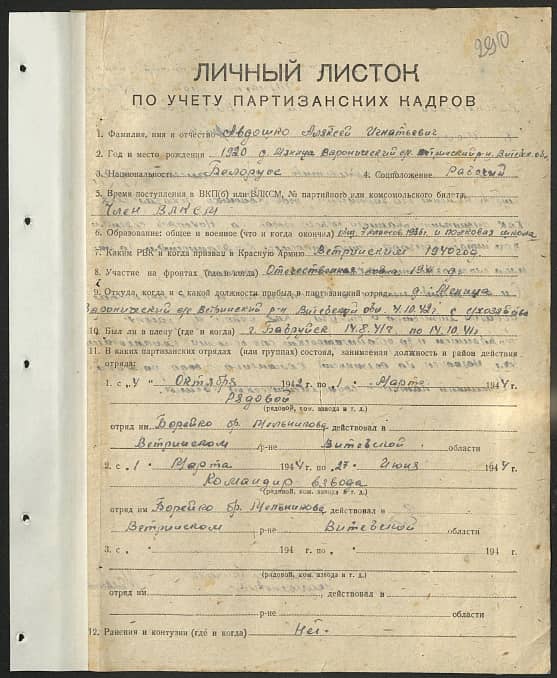 290
ЛИЧНЫЙ ЛИСТОК
ПО УЧЕТУ ПАРТИЗАНСКИХ КАДРОВ
1. Фамилия, имя и отчество Авдошко Алексей Игнатьевич
2. Год и место рождения 1920 д. Мяница Воронический с/с Ветринский р-н Витеб. об.
3. Национальность Белорус 4. Соцположение Рабочий
5. Время поступления в ВКП(б) или ВЛКСМ, № партийного или комсомольского билета
Член ВЛКСМ
6. Образование: общее и военное (что и когда окончил) общ. 7 классов 1936г. и полковая школа
7. Каким РВК и когда призван в Красную Армию Ветринским 1940 год
8. Участие на фронтах (где и когда) Отечественная 1941
9. Откуда, когда и с какой должности прибыл в партизанский отряд д. Меница
Воронический с/с Ветринский р-н Витебской обл. 4.10.42г. с
10. Был ли в плену (где и когда) г. Бабруйск 14.8.41г по 14.10.41г
11. В каких партизанских отрядах (или группах) состоял, занимаемая должность и район действия
отряда:
1. с „4" Октября 1942 г. по „1" Марта 1944 г.
Рядовой
(рядовой, ком. взвода и т. д.)
отряд им. Борейко бр. Мельникова действовал в
Ветринском р-не Витебской области
2. с „1" Марта 1944 г. по „27" Июня 1944 г.
Командир взвода
(рядовой, ком. взвода и т. д.)
отряд им Борейко бр. Мельникова, действовал в
Ветринском р-не Витебской области
3. с „ " 194 г. по „ " 194 г.
(рядовой, ком. взвода и т. д.)
отряд им. , действовал в
р-не области
12. Ранения и контузии (где и когда) Нет.